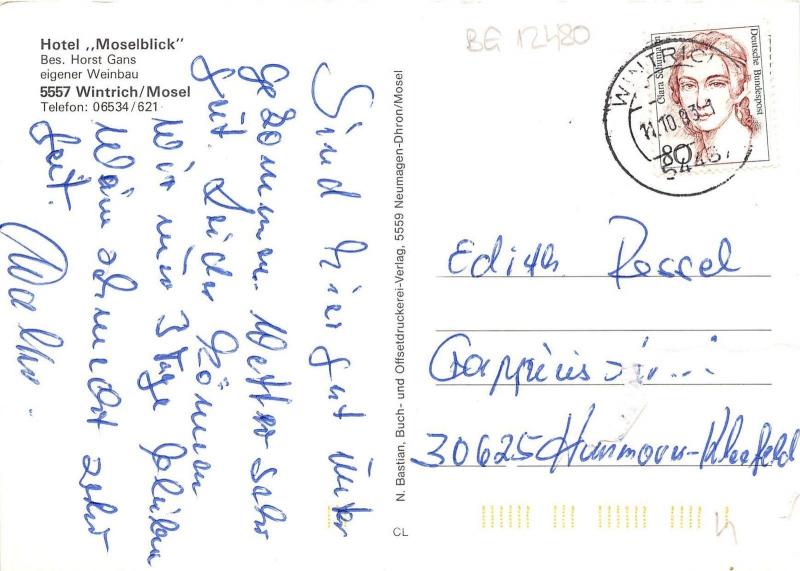 Hotel „Moselblick"
Bes. Horst Gans
eigener Weinbau
5557 Wintrich/Mosel
Telefon: 06534/621
Sind hier gut unter
gekommen. Wetter sehr
gut. Leider können
Wir nur 3 Tage bleiben
Wein schmeckt sehr
gut.
N. Bastian, Buch- und Offsetdruckerei-Verlag, 5559 Neumagen-Dhron/Mosel
CL
BE 12480
Clara Schumann
Deutsche Bundespost
80
WINTRICH
11.10.93
54487
Edith Rossel
30625 Hannover-Kleefeld